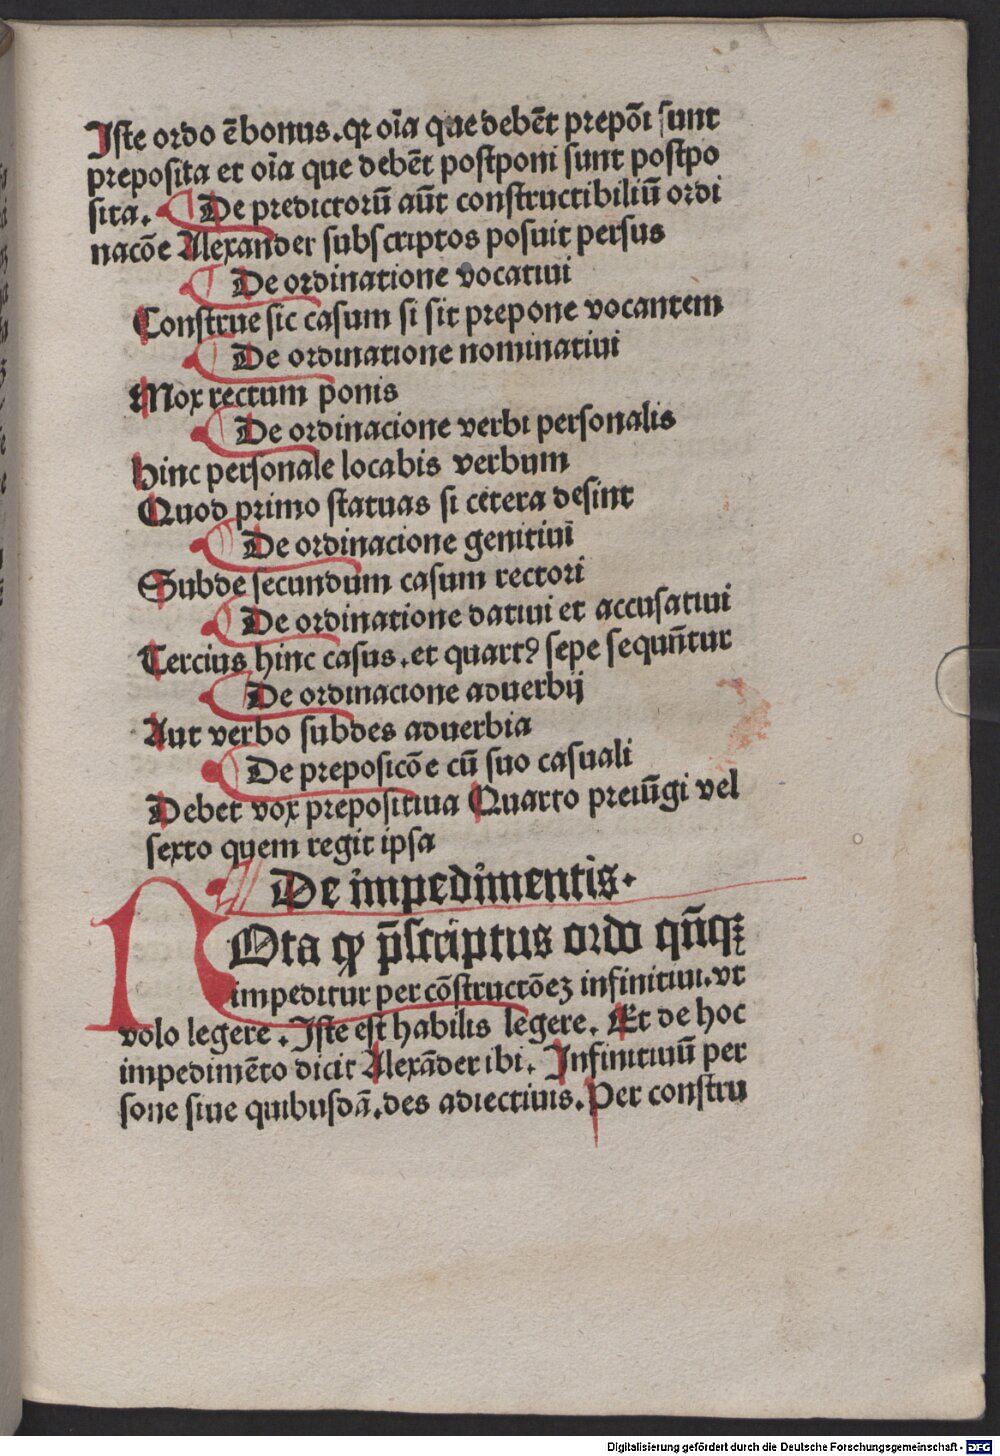 Iste ordo ē bonus.qꝛ oīa que debēt prepōi sunt
preposita et oīa que debēt postponi sunt postpo
sita. De predictorū aūt constructibiliū ordi
nacōe Alexander subscriptos posuit persus
De ordinatione vocatiui
Construe sic casum si sit prepone vocantem
De ordinatione nominatiui
Mox rectum ponis
De ordinacione verbi personalis
hinc personale locabis verbum
Quod primo statuas si cetera desint
De ordinacione genitiui
Subde secundum casum rectori
De ordinatione datiui et accusatiui
Tercius hinc casus.et quartꝰ sepe sequūtur
De ordinacione aduerbij
Aut verbo subdes aduerbia
De preposicōe cū suo casuali
Debet vox prepositiua Quarto preiūgi vel
sexto quem regit ipsa
De impedimentis.
NOta ꝙ p̄scriptus ordo qn̄qꝫ
impeditur per cōstructōeꝫ infinitiui.vt
volo legere. Iste est habilis legere. Et de hoc
impedimēto dicit Alexāder ibi. Infinitiuū per
sone siue quibusdā.des adiectiuis. Per constru
Digitalisierung gefördert durch die Deutsche Forschungsgemeinschaft - DFG